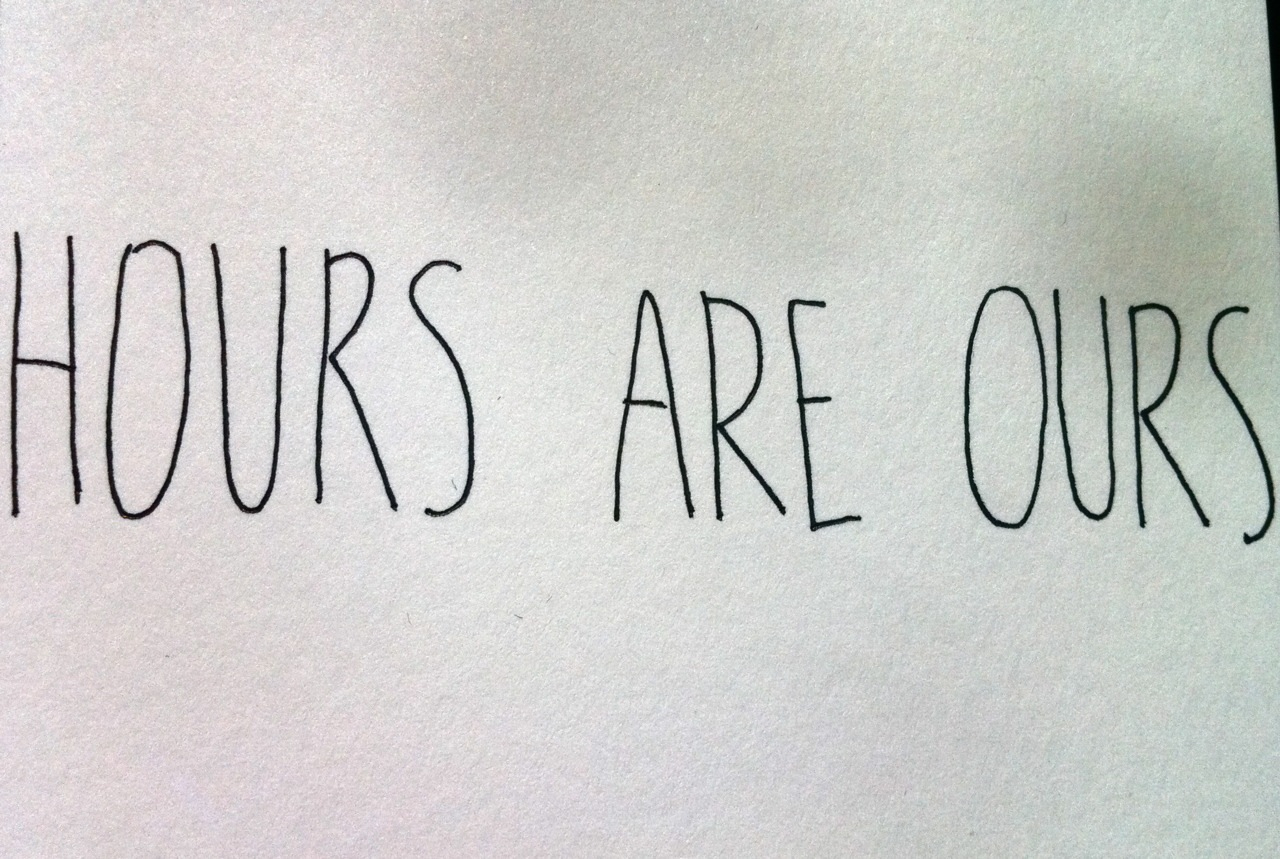 HOURS ARE OURS